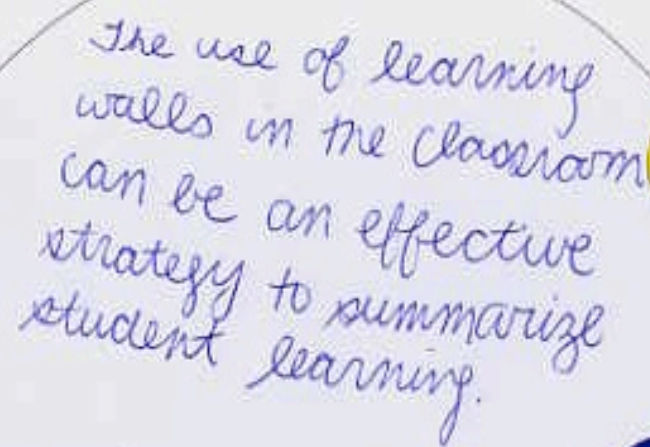 The use of learning
walls in the classroom
can be an effective
strategy to summarize
student learning.